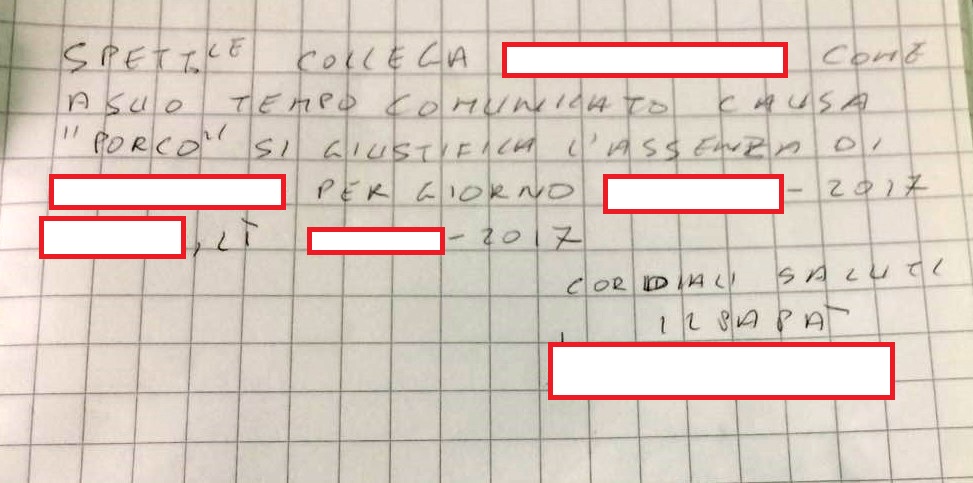 SPETT.LE COLLEGA COME
A SUO TEMPO COMUNICATO CAUSA
"PORCO" SI GIUSTIFICA L'ASSENZA DI
PER GIORNO - 2017
, LÌ - 2017
CORDIALI SALUTI
IL PAPÀ